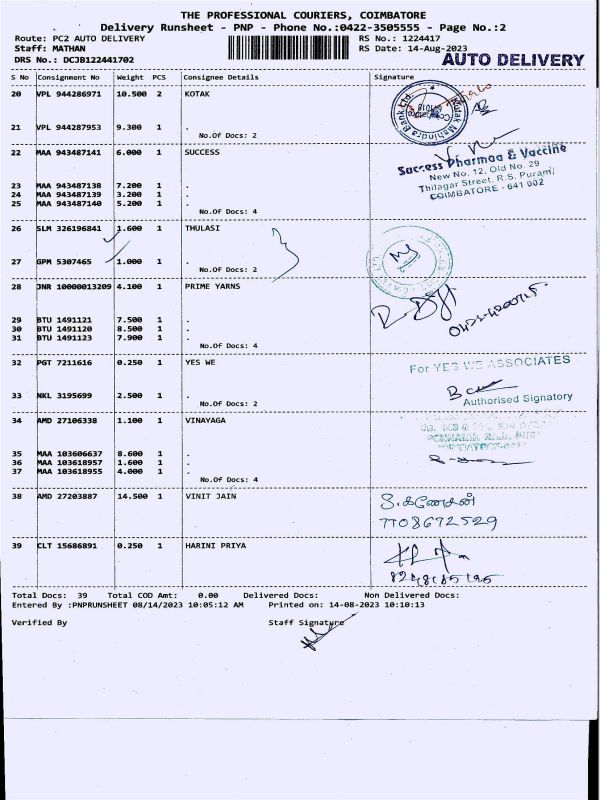 THE PROFESSIONAL COURIERS, COIMBATORE
Delivery Runsheet - PNP - Phone No.:0422-3505555 - Page No.:2
Route: PC2 AUTO DELIVERY RS No.: 1224417
Staff: MATHAN RS Date: 14-Aug-2023
DRS No.: DCJB122441702 AUTO DELIVERY
S No Consignment No Weight PCS Consignee Details Signature
20 VPL 944286971 10.500 2 KOTAK
Kotak Mahindra Bank Ltd.
21 VPL 944287953 9.300 1 .
No.Of Docs: 2
22 MAA 943487141 6.000 1 SUCCESS
Success Pharmaa & Vaccine
New No. 12, Old No. 29
Thilagar Street, R.S. Puram,
COIMBATORE - 641 002
23 MAA 943487138 7.200 1 .
24 MAA 943487139 3.200 1 .
25 MAA 943487140 5.200 1 .
No.Of Docs: 4
26 SLM 326196841 1.600 1 THULASI
27 GPM 5307465 1.000 1 .
No.Of Docs: 2
28 JNR 10000013209 4.100 1 PRIME YARNS
29 BTU 1491121 7.500 1 .
30 BTU 1491120 8.500 1 .
31 BTU 1491123 7.900 1 .
No.Of Docs: 4
32 PGT 7211616 0.250 1 YES WE
For YES WE ASSOCIATES
33 NKL 3195699 2.500 1 .
No.Of Docs: 2
Authorised Signatory
34 AMD 27106338 1.100 1 VINAYAGA
35 MAA 103606637 8.600 1 .
36 MAA 103618957 1.600 1 .
37 MAA 103618955 4.000 1 .
No.Of Docs: 4
38 AMD 27203887 14.500 1 VINIT JAIN
7708672529
39 CLT 15686891 0.250 1 HARINI PRIYA
Total Docs: 39 Total COD Amt: 0.00 Delivered Docs: Non Delivered Docs:
Entered By :PNPRUNSHEET 08/14/2023 10:05:12 AM Printed on: 14-08-2023 10:10:13
Verified By Staff Signature